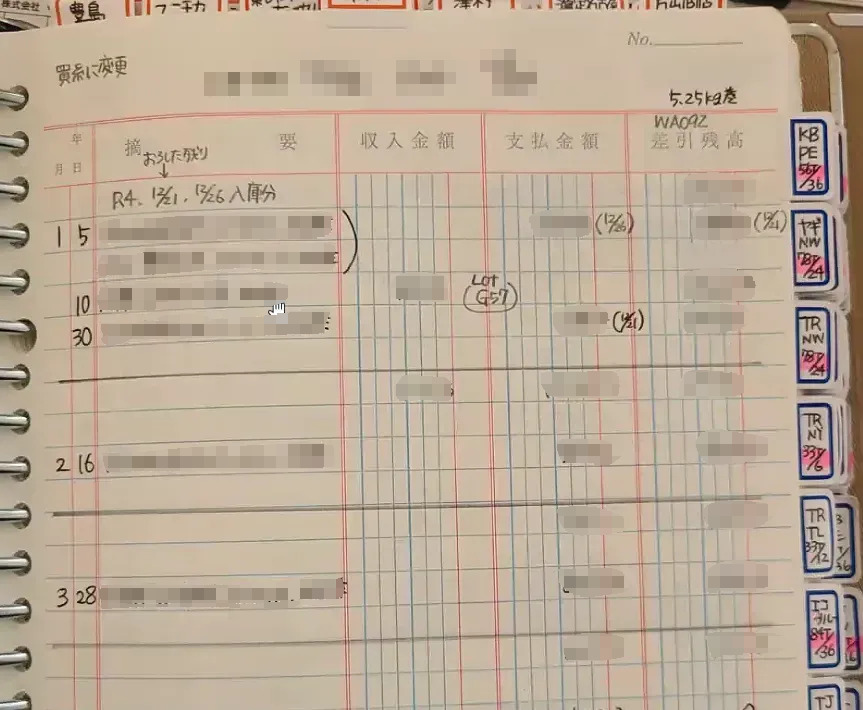 株式会社
豊島
No.
買糸に変更
5.25kg差
WA092
年
月 日
摘 要
収入金額
支払金額
差引残高
おろした残り
R4. 12/21, 12/26 入庫分
1 5
(12/26)
(12/21)
10
Lot
G57
30
(12/21)
2 16
3 28
KB
PE
56T/36
ヤギ
NW
78T/24
TR
NW
78T/24
TR
NY
33T/6
TR
TL
33T/12
エコ
84T/36
TJ